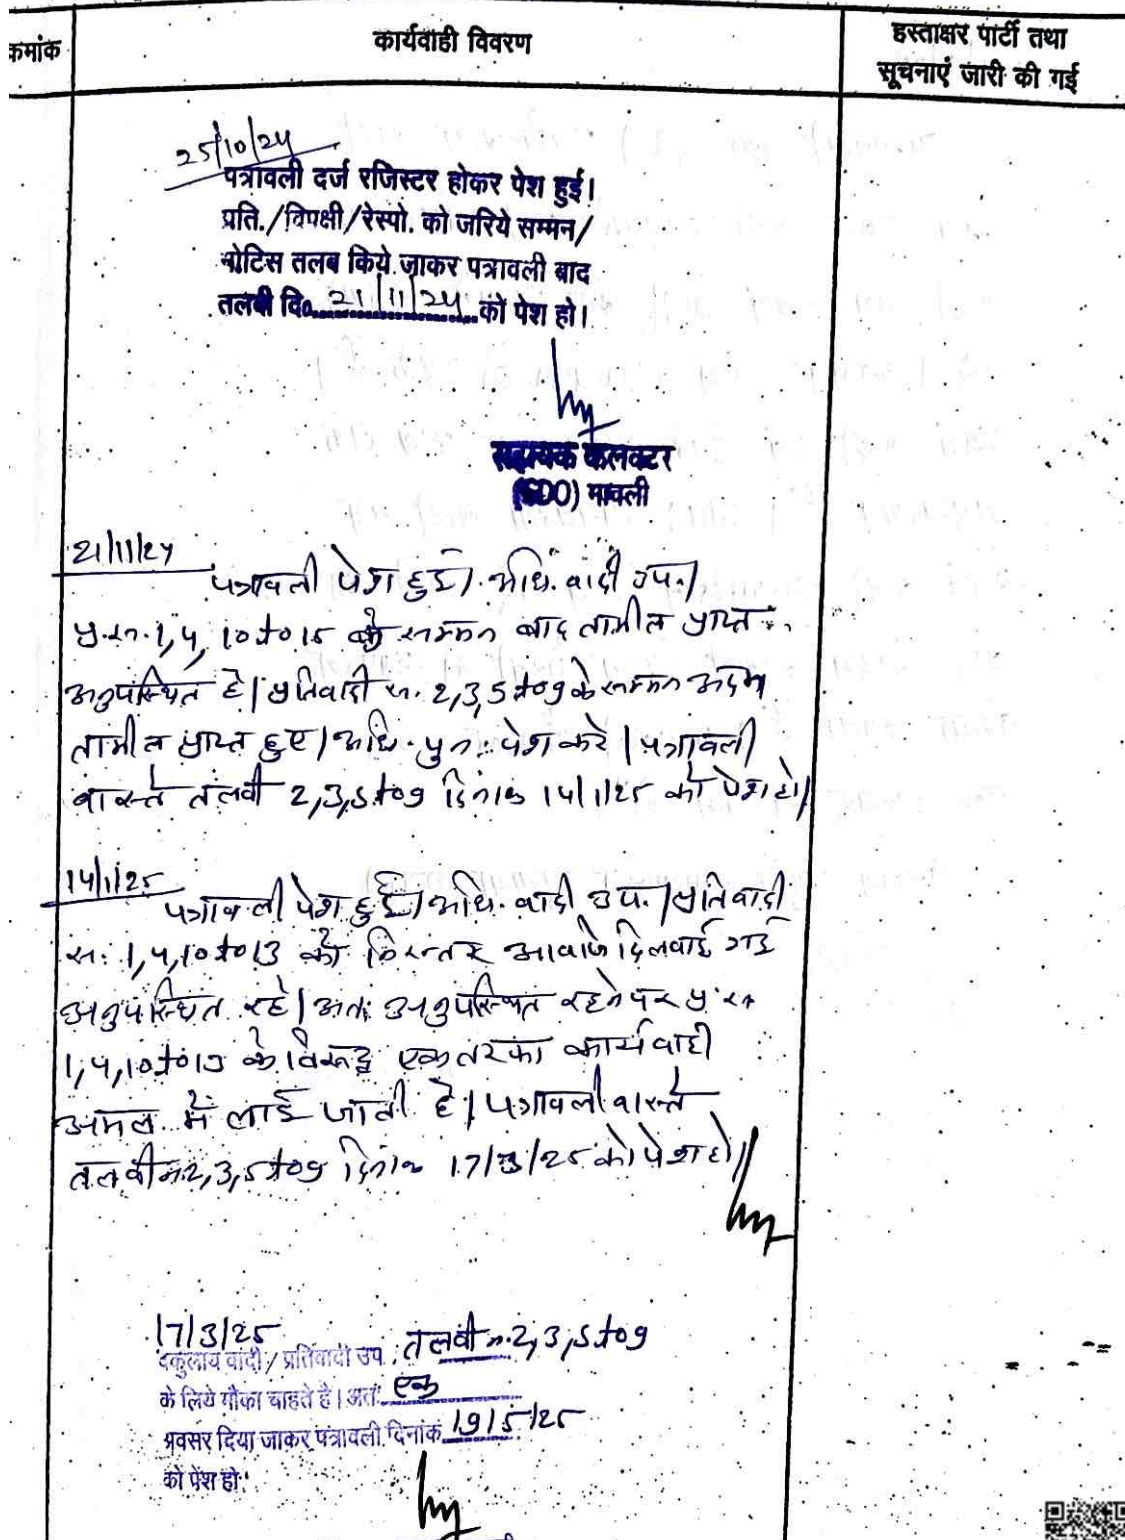 क्रमांक
कार्यवाही विवरण
हस्ताक्षर पार्टी तथा
सूचनाएं जारी की गई
25/10/24
पत्रावली दर्ज रजिस्टर होकर पेश हुई।
प्रति./विपक्षी/रेस्पो. को जरिये सम्मन/
नोटिस तलब किये जाकर पत्रावली बाद
तलबी दि० 21/11/24 को पेश हो।
सहायक कलक्टर
(SDO) मावली
21/11/24
पत्रावली पेश हुई। अधि. वादी उप.।
प्र.सं. 1,4, 10 to 15 के सम्मन बाद तामील प्राप्त
अनुपस्थित है। प्रतिवादी सं. 2,3,5 to 9 के सम्मन अदम
तामील प्राप्त हुए। अधि. पुनः पेश करे। पत्रावली
वास्ते तलबी 2,3,5 to 9 दिनांक 14/1/25 को पेश हो।
14/1/25
पत्रावली पेश हुई। अधि. वादी उप.। प्रतिवादी
सं. 1,4,10 to 13 को निरन्तर आवाजे दिलवाई गई
अनुपस्थित रहे। अतः अनुपस्थित रहने पर प्र.सं
1,4,10 to 13 के विरूद्ध एक तरफा कार्यवाही
अमल में लाई जाती है। पत्रावली वास्ते
तलबी न. 2,3,5 to 9 दिनांक 17/3/25 को पेश हो।
17/3/25
वकुलाय वादी/प्रतिवादी उप. तलबी न. 2,3,5 to 9
के लिये मौका चाहते है। अतः एक
अवसर दिया जाकर पत्रावली दिनांक 19/5/25
को पेश हो।